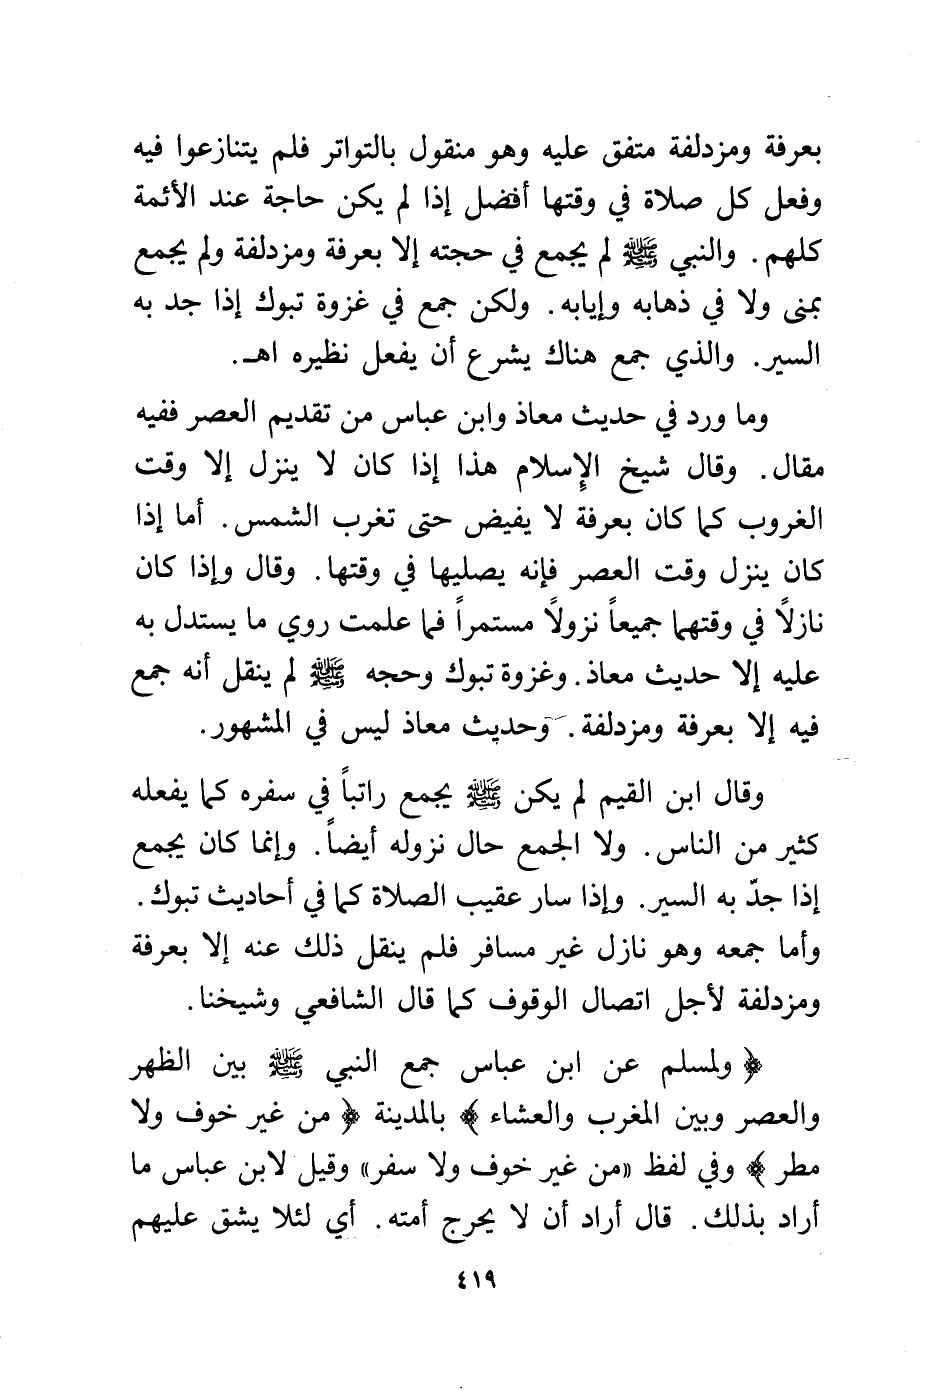 بعرفة ومزدلفة متفق عليه وهو منقول بالتواتر فلم يتنازعوا فيه
وفعل كل صلاة في وقتها أفضل إذا لم يكن حاجة عند الأئمة
كلهم. والنبي ﷺ لم يجمع في حجته إلا بعرفة ومزدلفة ولم يجمع
بمنى ولا في ذهابه وإيابه. ولكن جمع في غزوة تبوك إذا جد به
السير. والذي جمع هناك يشرع أن يفعل نظيره اهـ.
وما ورد في حديث معاذ وابن عباس من تقديم العصر ففيه
مقال. وقال شيخ الإسلام هذا إذا كان لا ينزل إلا وقت
الغروب كما كان بعرفة لا يفيض حتى تغرب الشمس. أما إذا
كان ينزل وقت العصر فإنه يصليها في وقتها. وقال وإذا كان
نازلاً في وقتهما جميعاً نزولاً مستمراً فما علمت روي ما يستدل به
عليه إلا حديث معاذ. وغزوة تبوك وحجه ﷺ لم ينقل أنه جمع
فيه إلا بعرفة ومزدلفة. وحديث معاذ ليس في المشهور.
وقال ابن القيم لم يكن ﷺ يجمع راتباً في سفره كما يفعله
كثير من الناس. ولا الجمع حال نزوله أيضاً. وإنما كان يجمع
إذا جدّ به السير. وإذا سار عقيب الصلاة كما في أحاديث تبوك.
وأما جمعه وهو نازل غير مسافر فلم ينقل ذلك عنه إلا بعرفة
ومزدلفة لأجل اتصال الوقوف كما قال الشافعي وشيخنا.
﴿ ولمسلم عن ابن عباس جمع النبي ﷺ بين الظهر
والعصر وبين المغرب والعشاء ﴾ بالمدينة ﴿ من غير خوف ولا
مطر ﴾ وفي لفظ «من غير خوف ولا سفر» وقيل لابن عباس ما
أراد بذلك. قال أراد أن لا يحرج أمته. أي لئلا يشق عليهم
٤١٩